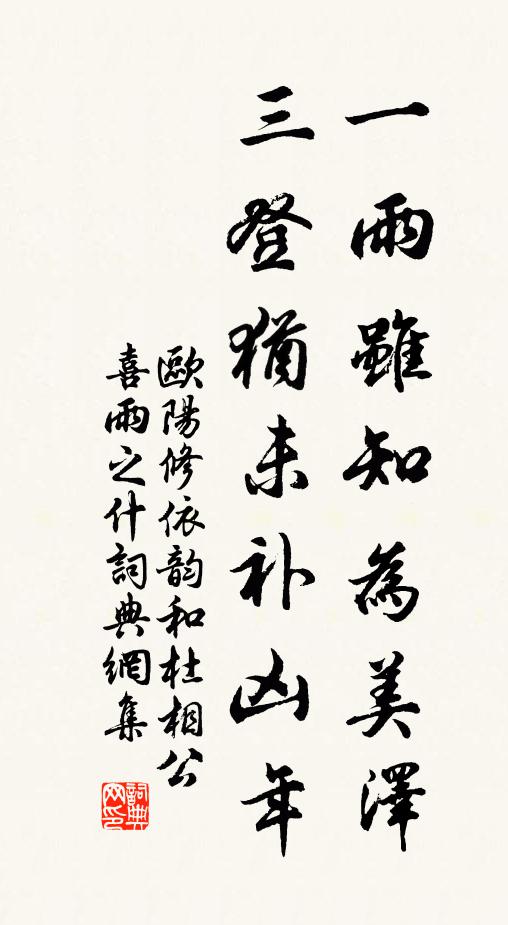 一雨雖知為美澤
三登猶未补凶年
歐陽修依韵和杜相公
喜雨之什詞典網集
詞典网印